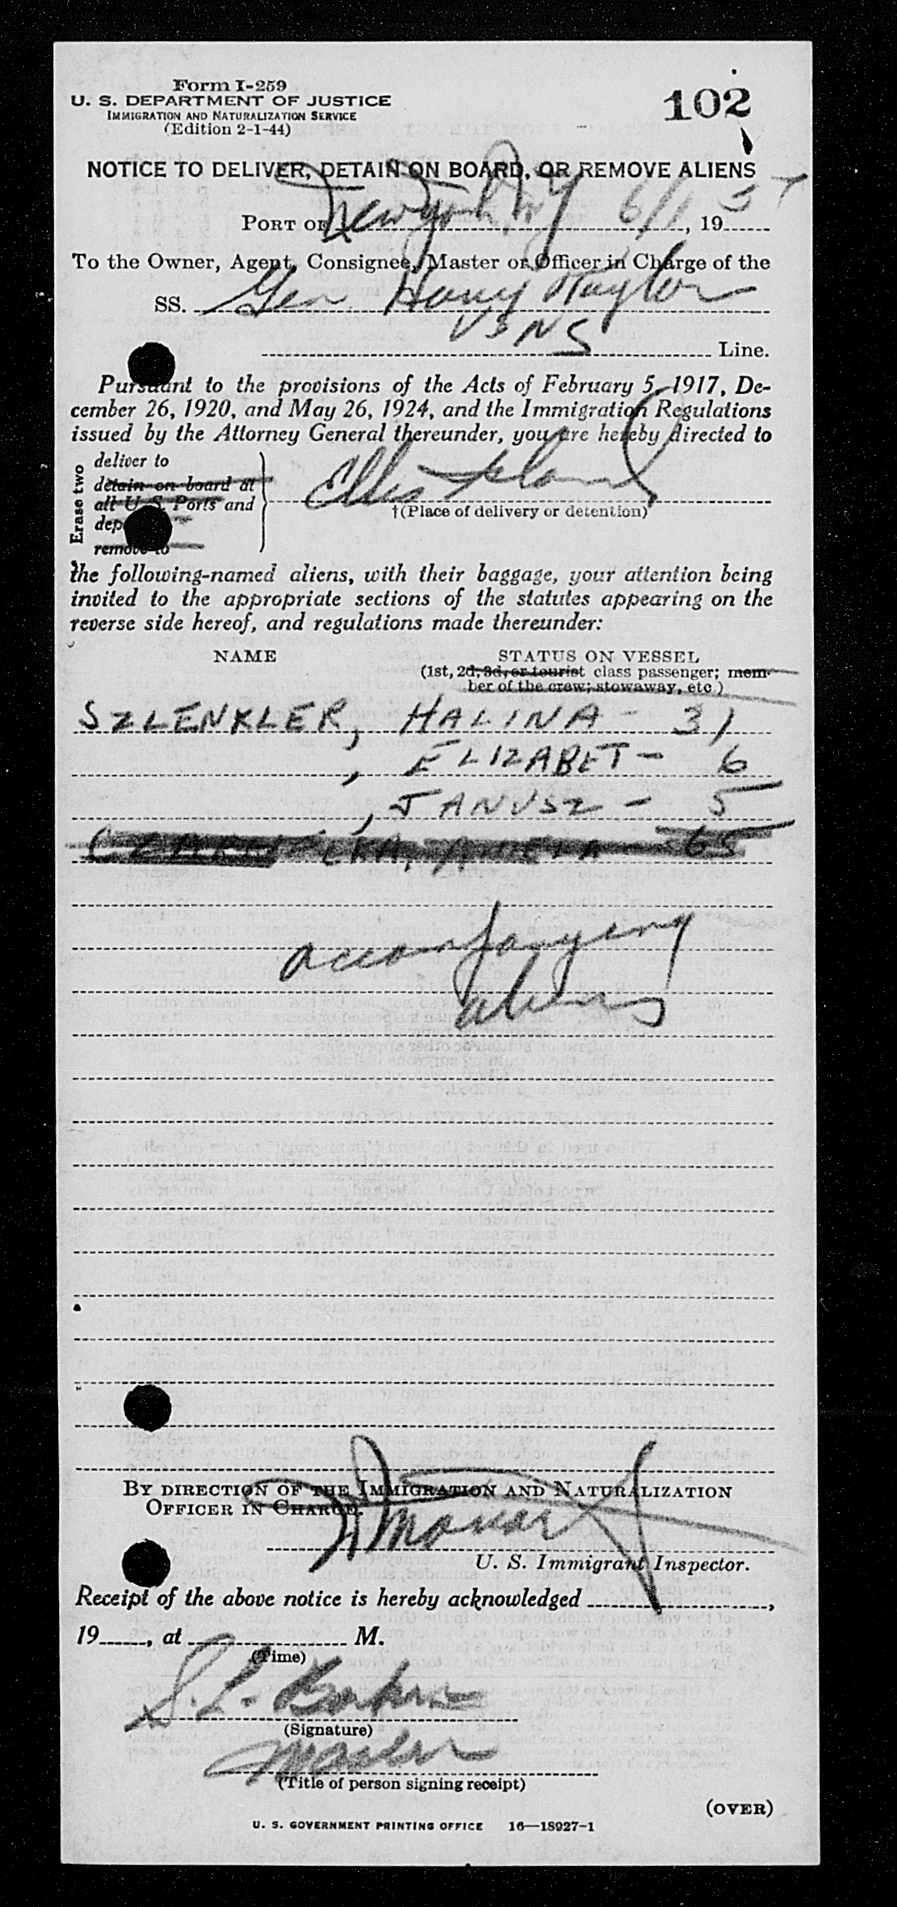 Form I-259
U. S. DEPARTMENT OF JUSTICE
IMMIGRATION AND NATURALIZATION SERVICE
(Edition 2-1-44)
102
NOTICE TO DELIVER, DETAIN ON BOARD, OR REMOVE ALIENS
PORT OF New York NY 6/1 , 19 5
To the Owner, Agent, Consignee, Master or Officer in Charge of the
SS. Gen Harry Taylor
USNS Line.
Pursuant to the provisions of the Acts of February 5, 1917, De-
cember 26, 1920, and May 26, 1924, and the Immigration Regulations
issued by the Attorney General thereunder, you are hereby directed to
Erase two
deliver to
detain on board at
all U. S. Ports and
dep
remove to
Ellis Island
†(Place of delivery or detention)
the following-named aliens, with their baggage, your attention being
invited to the appropriate sections of the statutes appearing on the
reverse side hereof, and regulations made thereunder:
NAME STATUS ON VESSEL
(1st, 2d, 3d, or tourist class passenger; mem-
ber of the crew; stowaway, etc.)
SZLENKLER, HALINA - 31
, ELIZABET - 6
, JANUSZ - 5
ANIELA 65
accompanying
aliens
BY DIRECTION OF THE IMMIGRATION AND NATURALIZATION
OFFICER IN CHARGE.
U. S. Immigrant Inspector.
Receipt of the above notice is hereby acknowledged ,
19 , at M.
(Time)
S. L.
(Signature)
Master
(Title of person signing receipt)
(OVER)
U. S. GOVERNMENT PRINTING OFFICE 16—18927-1